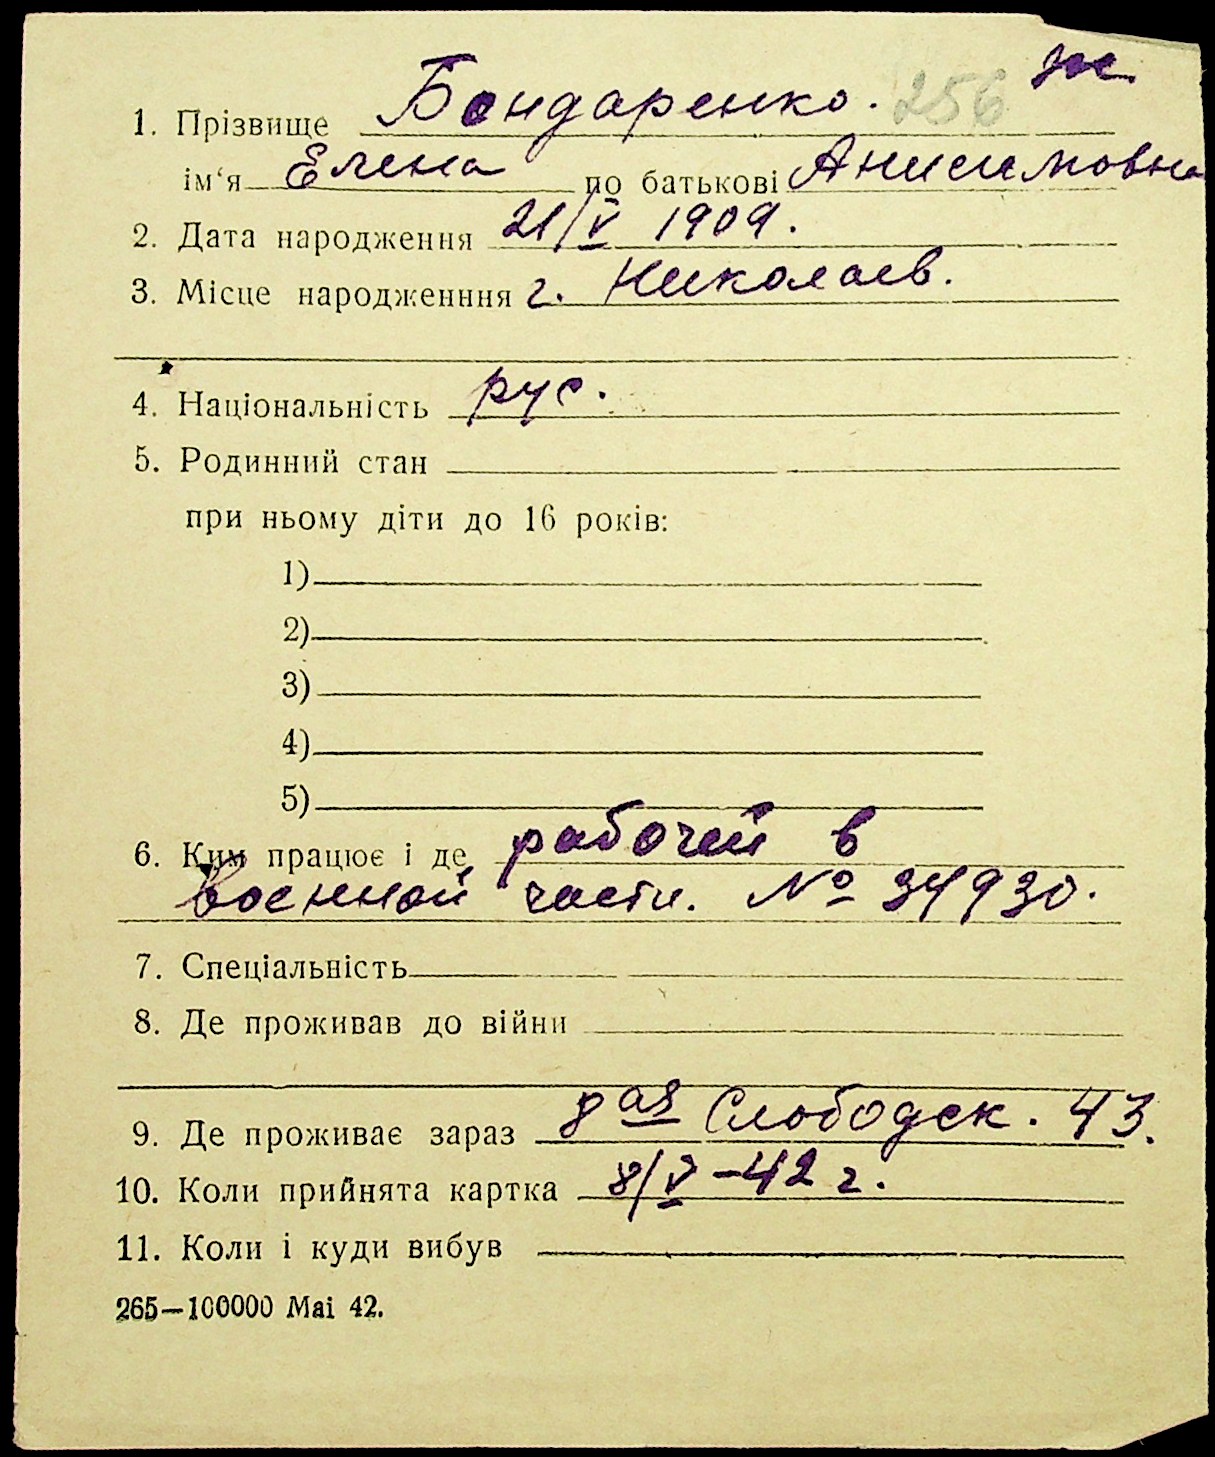 же
1. Прізвище Бондаренко. 256
ім‘я Елена по батькові Анисимовна
2. Дата народження 21/V 1909.
3. Місце народженння г. Николаев.
4. Національність рус.
5. Родинний стан
при ньому діти до 16 років:
1)
2)
3)
4)
5)
6. Ким працює і де рабочей в
военной части. № 34930.
7. Спеціальність
8. Де проживав до війни
9. Де проживає зараз 8ая Слободск. 43.
10. Коли прийнята картка 8/V-42 г.
11. Коли і куди вибув
265—100000 Mai 42.